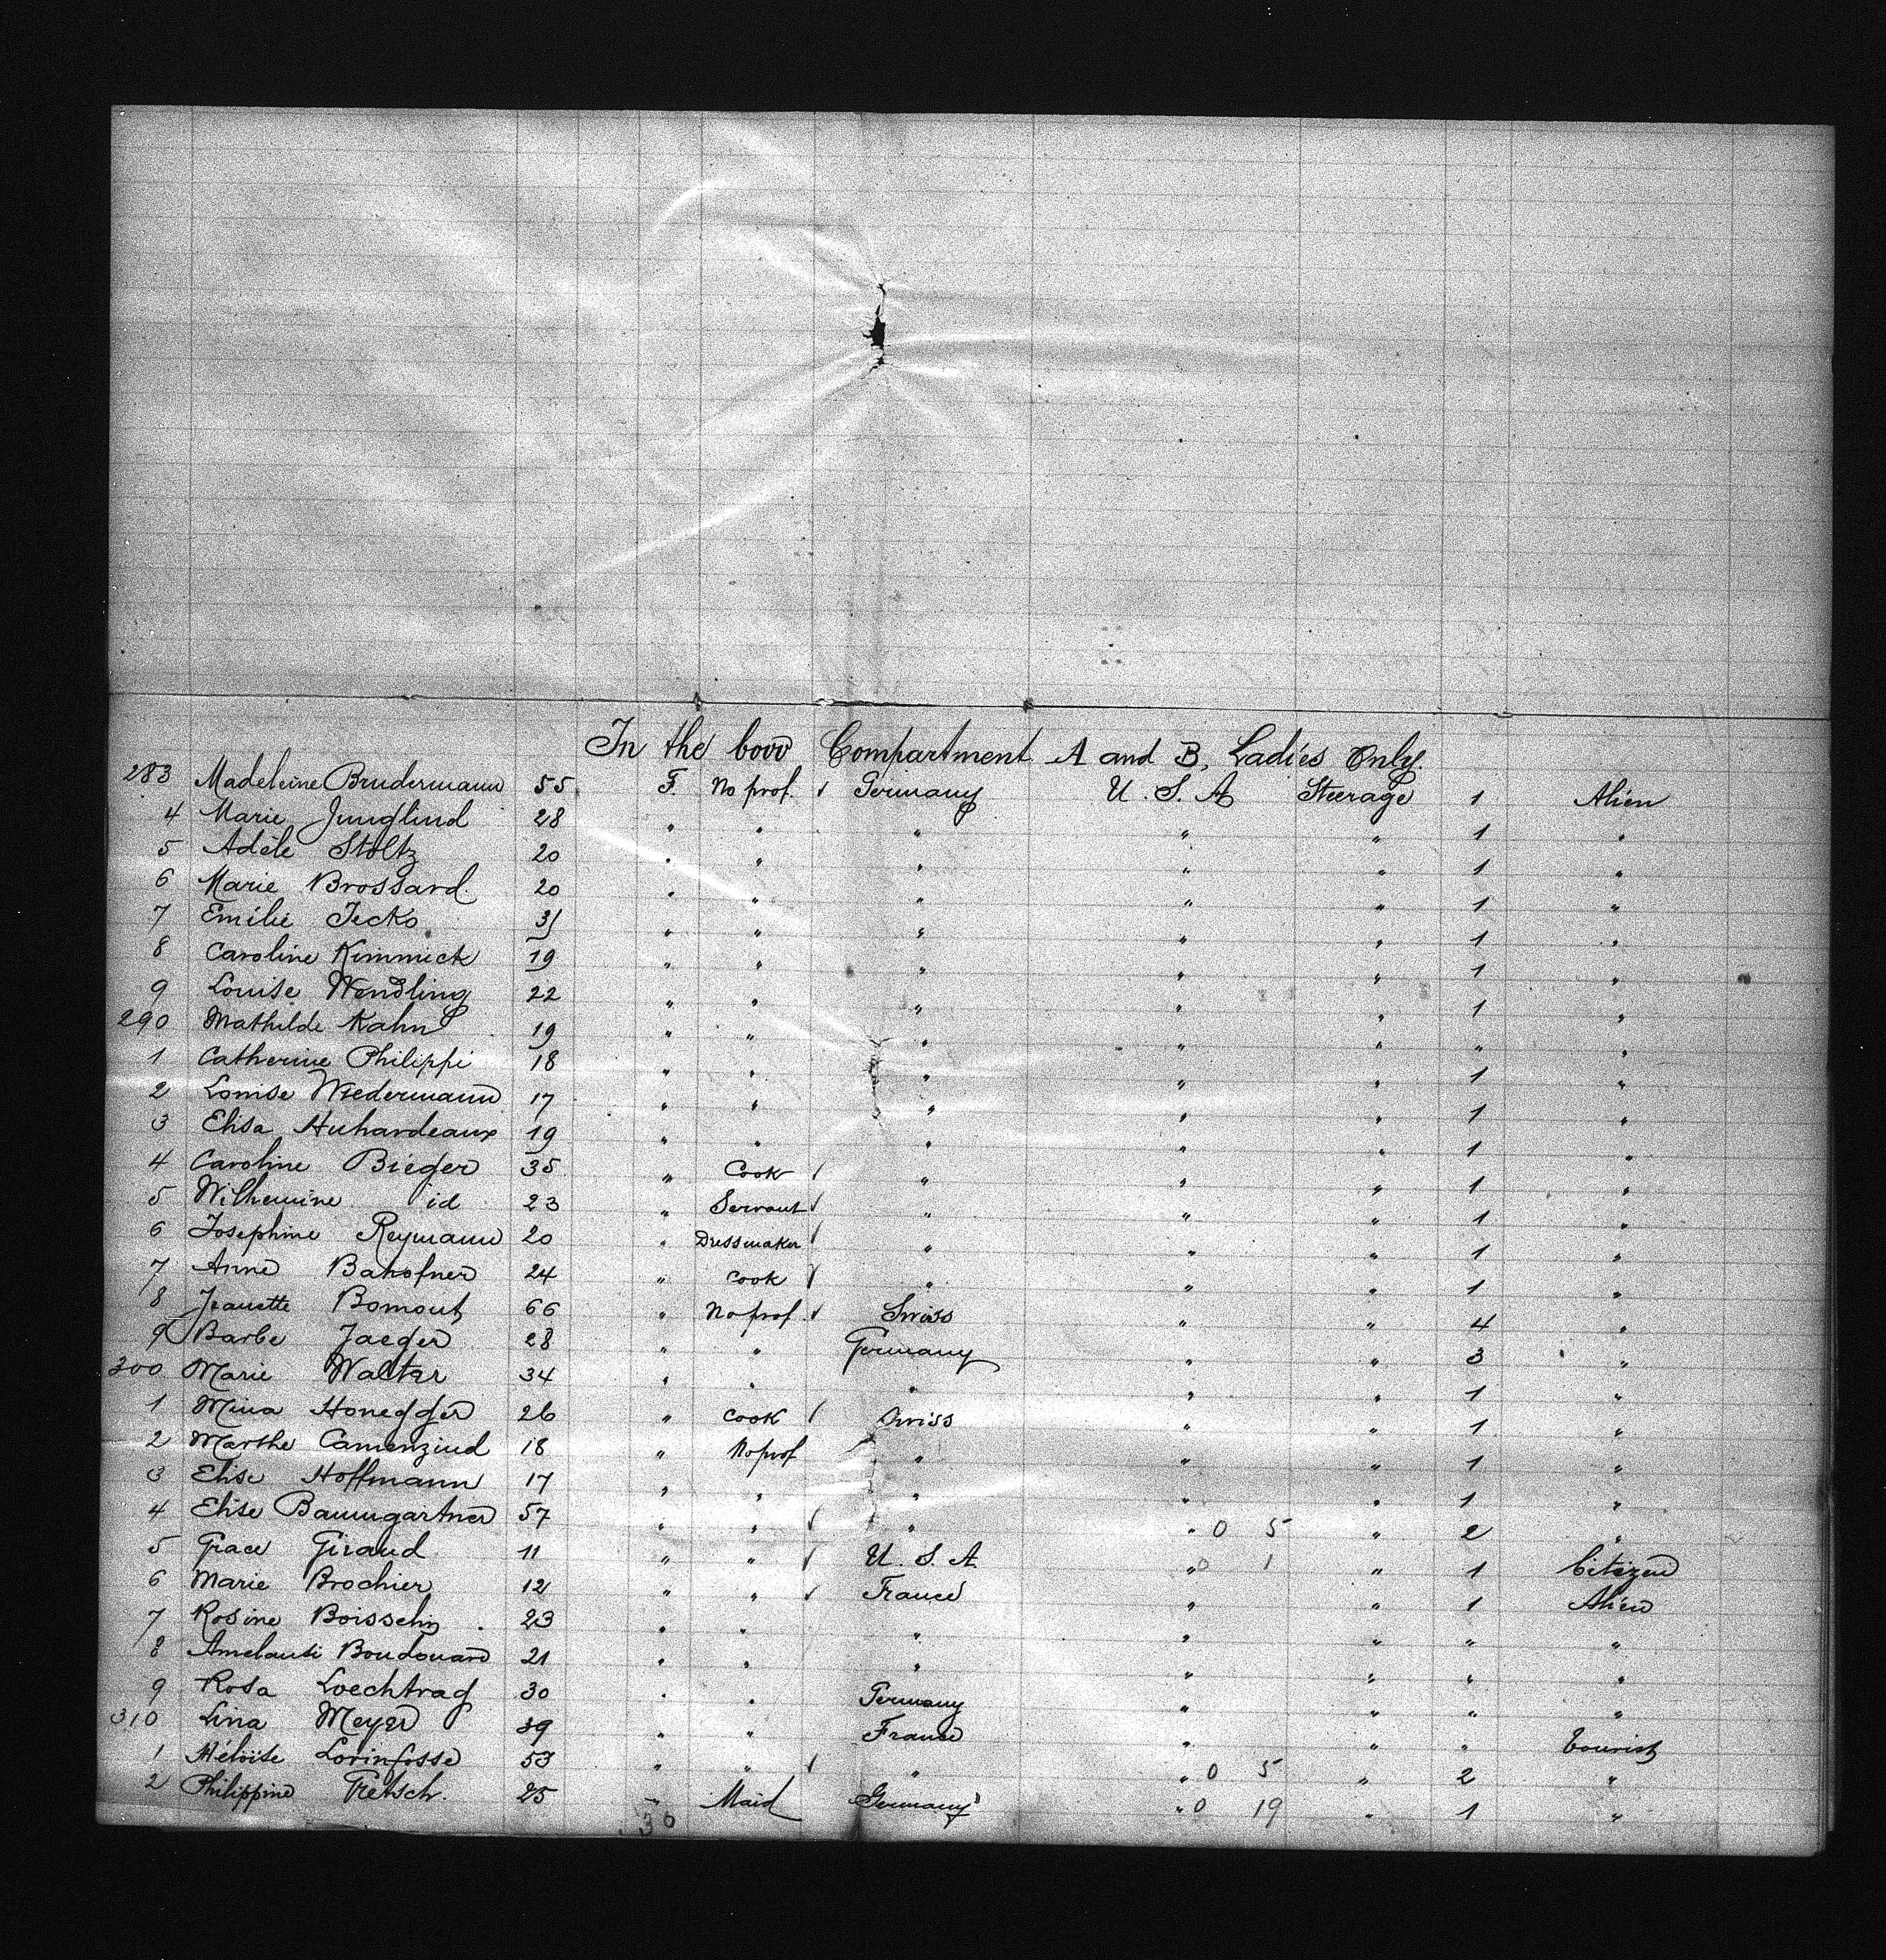 In the bow Compartment A and B, Ladies Only.
283 Madeleine Brudermann 55 F. No prof. √ Germany U. S. A Steerage 1 Alien
4 Marie Junglind 28 " " " " " 1 "
5 Adèle Stoltz 20 " " " " " 1 "
6 Marie Brossard. 20 " " " " " 1 "
7 Emilie Jecko 31 " " " " " 1 "
8 Caroline Kimmick 19 " " " " " 1 "
9 Louise Wendling 22 " " " " " 1 "
290 Mathilde Kahn 19 " " " " " " "
1 Catherine Philippi 18 " " " " " 1 "
2 Louise Wiedermann 17 " " " " " 1 "
3 Elisa Huhardeaux 19 " " " " " 1 "
4 Caroline Bieger 35 " Cook √ " " " 1 "
5 Wilhemine id 23 " Servant √ " " " 1 "
6 Josephine Reymann 20 " Dressmaker √ " " " 1 "
7 Anne Bahofner 24 " Cook √ " " " 1 "
8 Jeanette Bomont 66 " No prof. √ Swiss " " 4 "
9 Barbe Jaeger 28 " " Germany " " 3 "
300 Marie Walter 34 " " " " " 1 "
1 Mina Honegger 26 " Cook √ Swiss " " 1 "
2 Marthe Camenzind 18 " No prof " " " 1 "
3 Elise Hoffmann 17 " " " " " 1 "
4 Elise Baumgartner 57 " " √ " " 0 5 " 2 "
5 Grace Giraud 11 " " √ U. S. A " 0 1 " 1 Citizen
6 Marie Brochier 12 " " √ France " " 1 Alien
7 Rosine Boisselin 23 " " " " " " "
8 Boudouard 21 " " " " " " "
9 Rosa Loechtrag 30 " " Germany " " " "
310 Lina Meyer 39 " " France " " " tourist
1 Héloïse Lorinfosse 53 " " √ " " 0 5 " 2 "
2 Philippine Fretsch. 25 " Maid Germany " 0 19 " 1 "
30